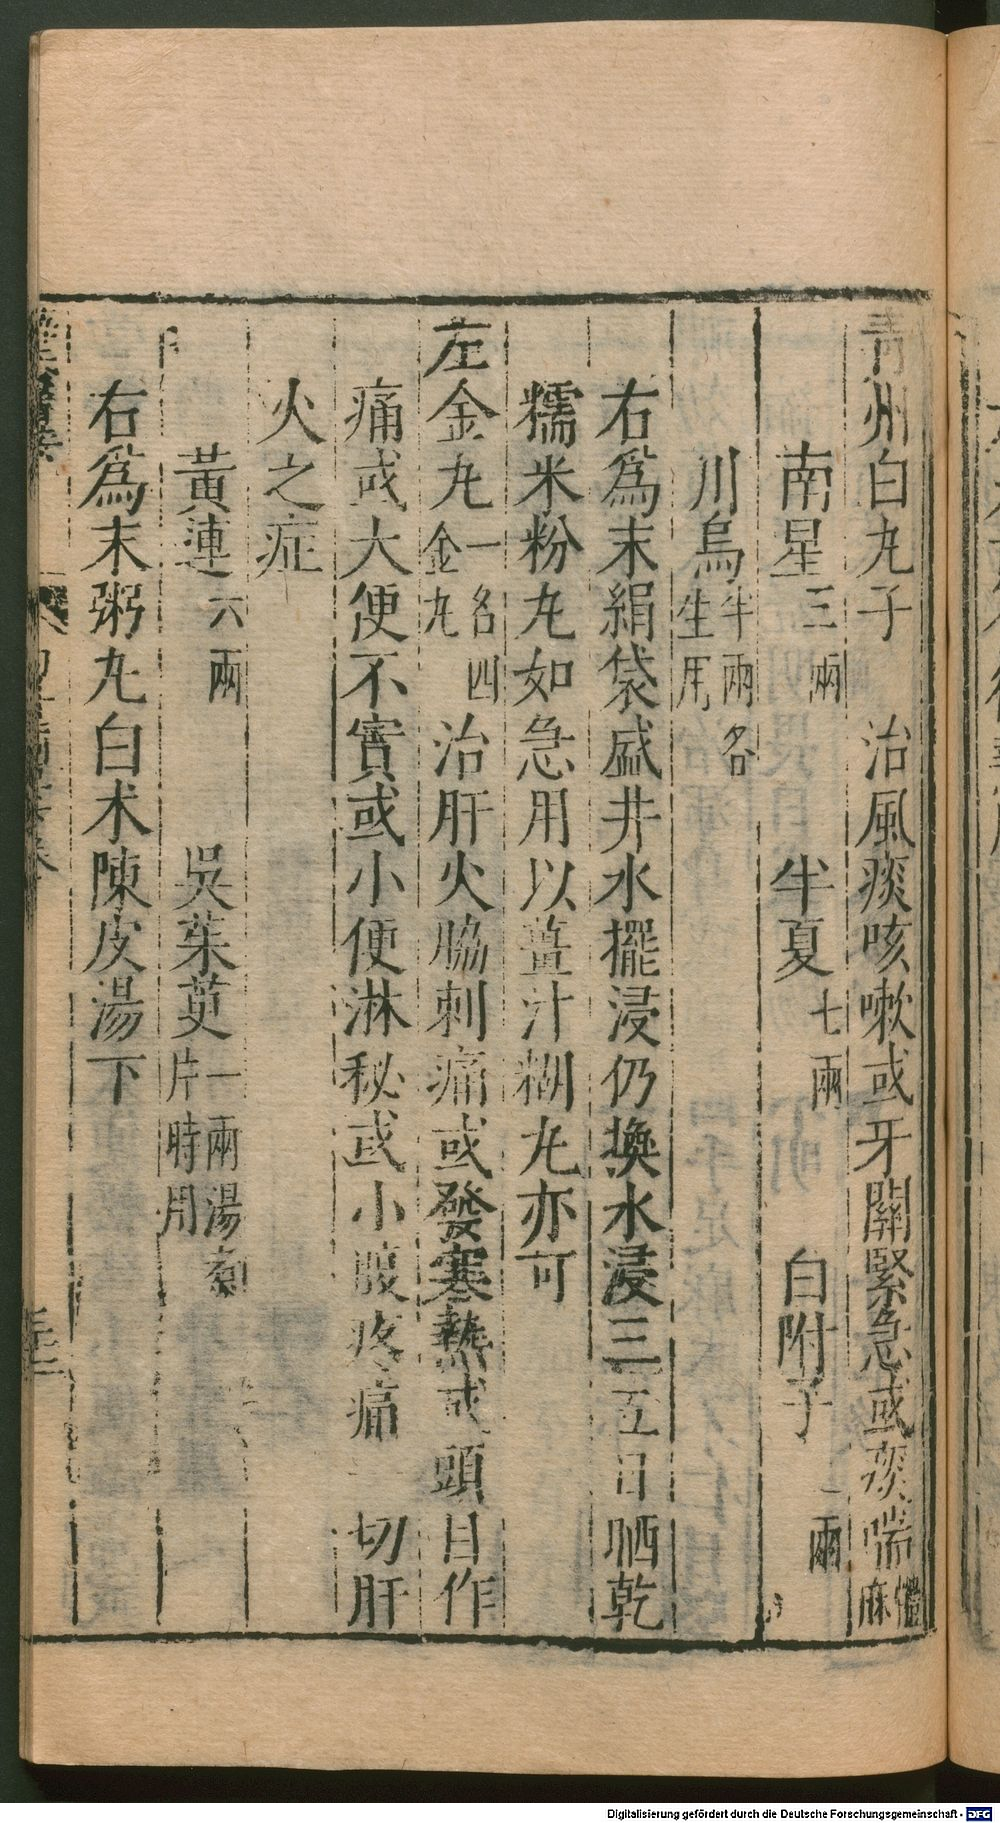 青州白丸子　治風痰咳嗽或牙關緊急或痰喘體麻
南星三兩　半夏七兩　白附子二兩
川烏半兩各生用
右爲末絹袋盛井水擺浸仍換水浸三五日晒乾
糯米粉丸如急用以薑汁糊丸亦可
左金丸一名四金丸　治肝火脇刺痛或發寒熱或頭目作
痛或大便不實或小便淋秘或小腹疼痛一切肝
火之症
黃連六兩　吳茱萸一兩湯煮片時用
右爲末粥丸白术陳皮湯下
Digitalisierung gefördert durch die Deutsche Forschungsgemeinschaft - DFG